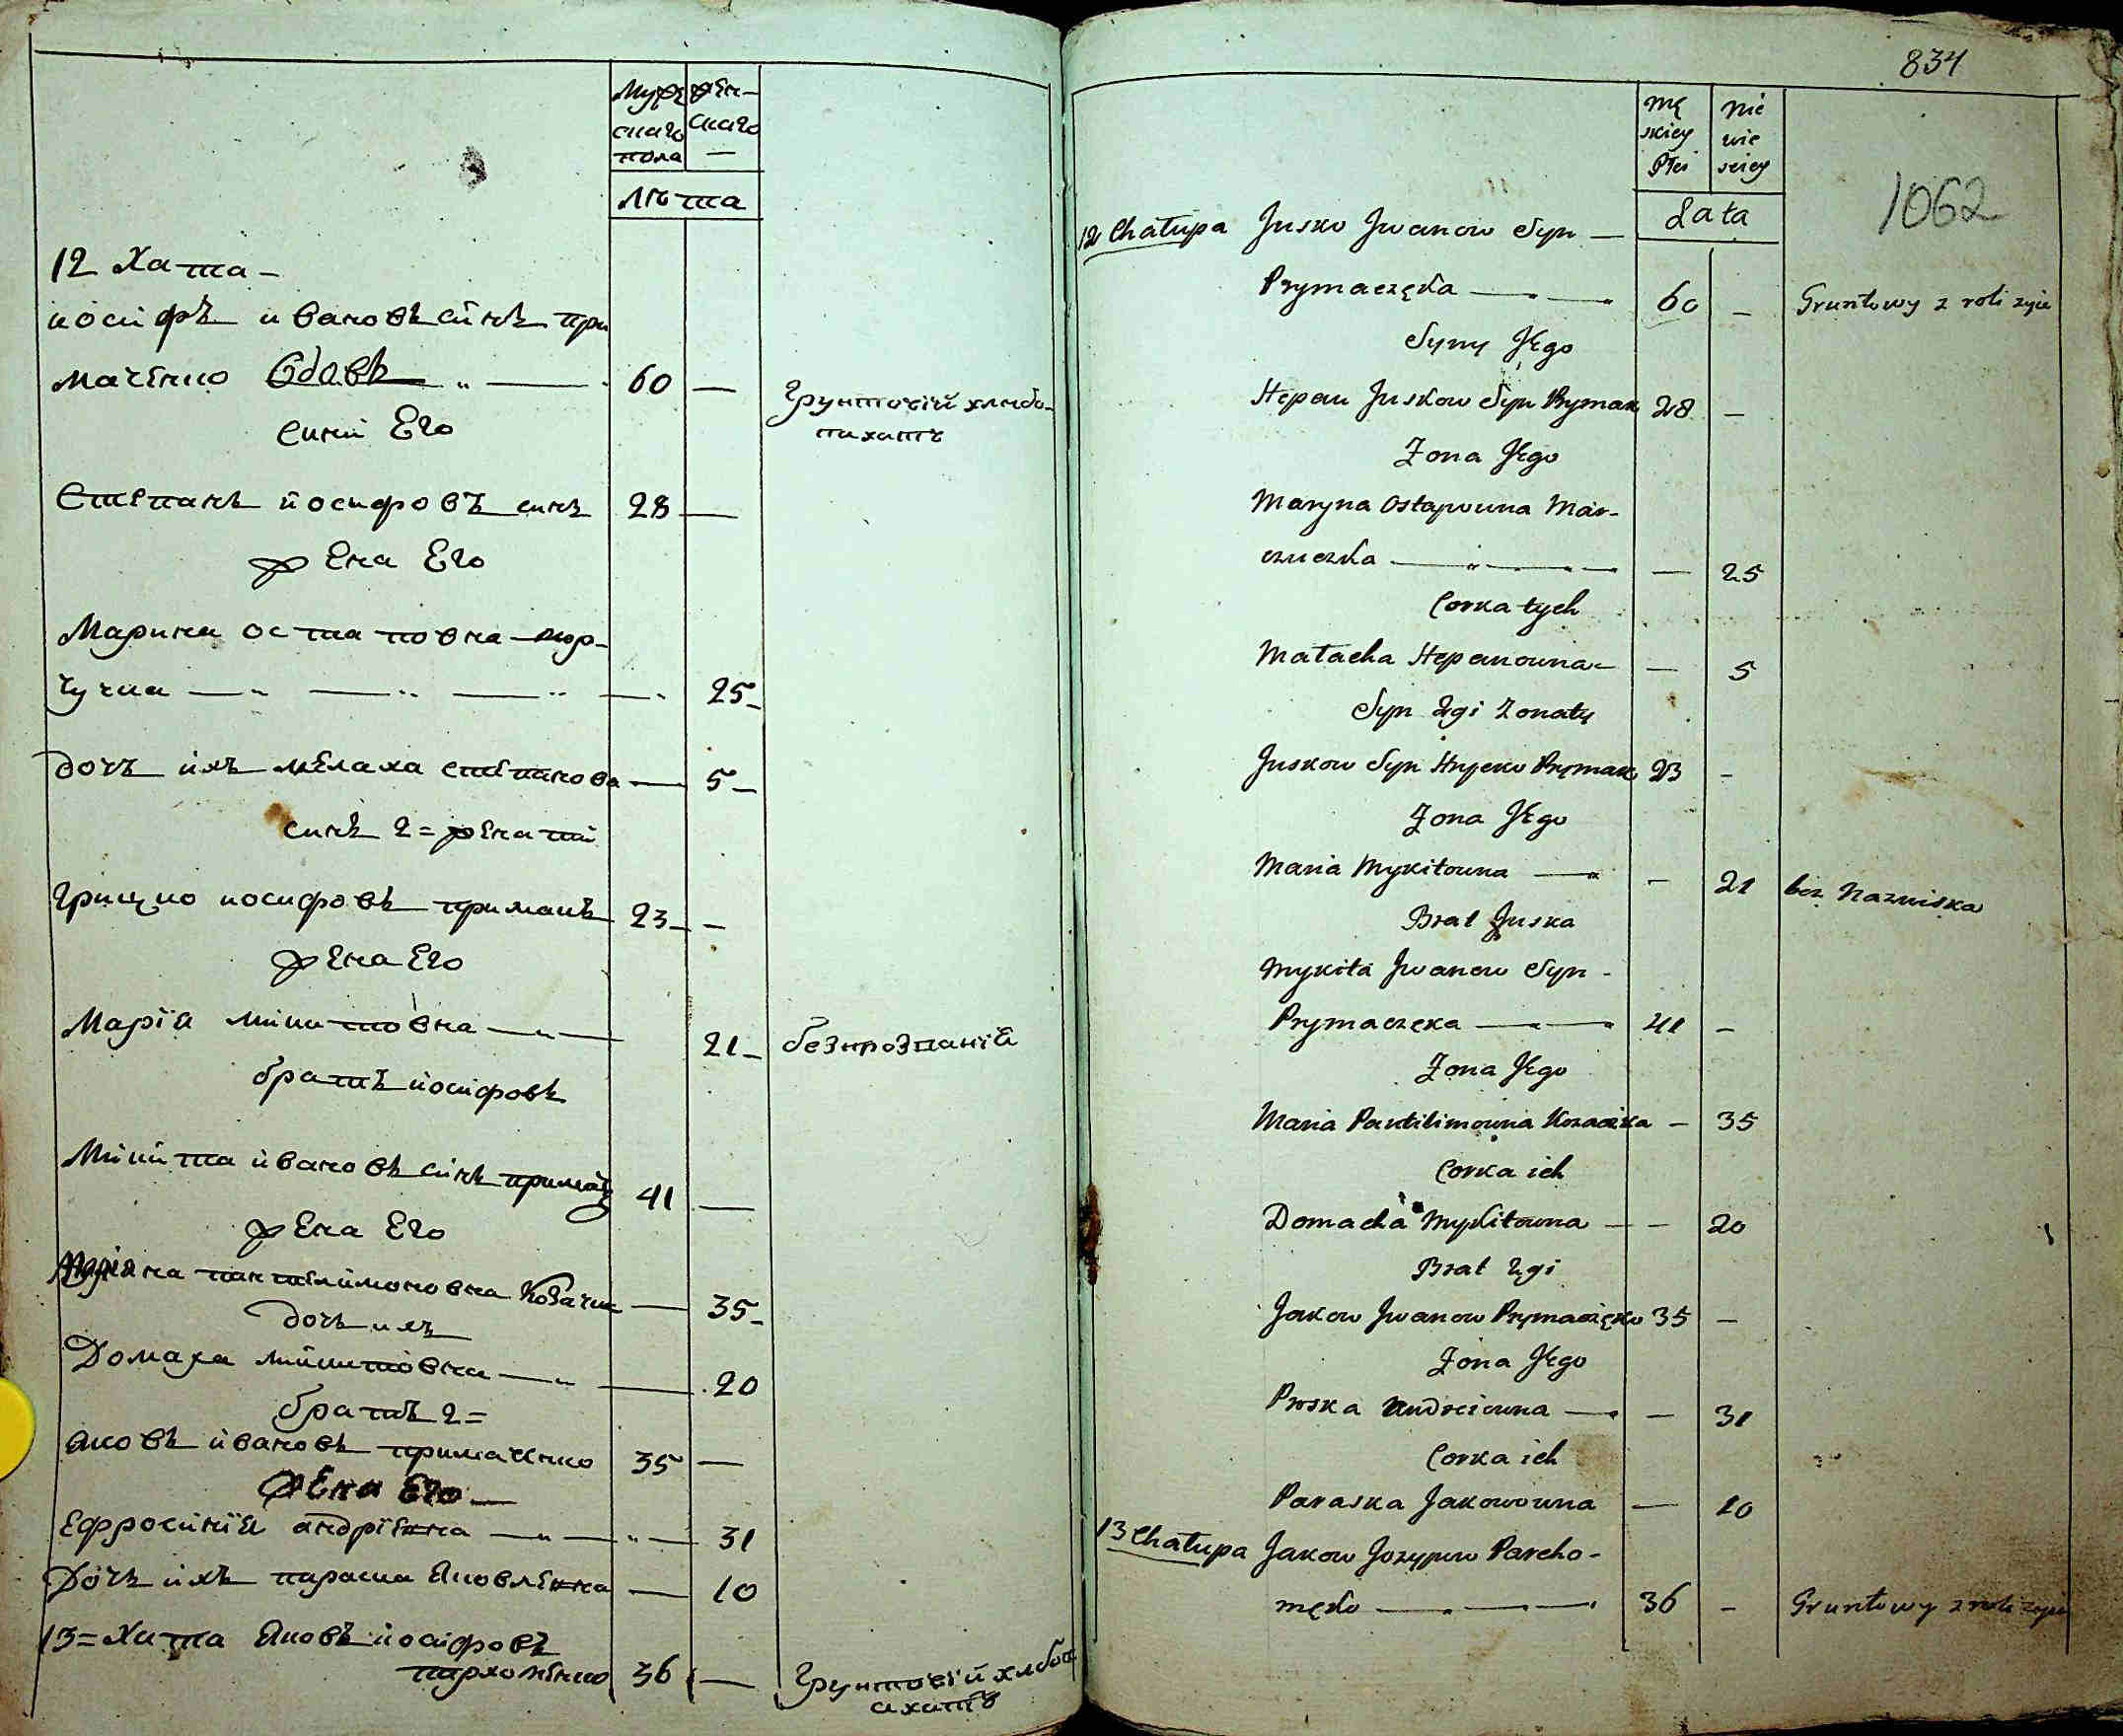 Мужескаго пола
женскаго —
лѣта
12 Хата –
иосифъ ивановъ синъ при
маченко Вдовъ „ — 60 —
Грунтовій хлебо-
пахатъ
сини Его
Степанъ иосифовъ синъ 28 —
жена Его
Марина остаповна
чучка — „ — „ — „ — „ 25 –
дочь ихъ мелаха степанова — 5 –
синъ 2 = женатій
Грицко иосифовъ примакъ 23 – –
жена Его
Марія микитовна — „ — 21 –
братъ иосифовъ
Микита ивановъ синъ 41 —
жена Его
пантелимоновна Козачка — 35 –
дочь ихъ
Домаха микитовна — „ — 20
братъ 2 =
Яковъ ивановъ примаченко 35 —
жена Его —
Ефросинія андріевна — „ — „ — 31
Дочь ихъ параска Яковлевна — 10
13 = Хата Яковъ иосифовъ
пархоменко 36 —
Грунтовій хлебоп
ахатъ
834
mę
skiey
Płci
Nie
wie
sciey
Lata
1062
12 Chałupa Jusko Jwanow Syn —
Prymaczęka — — 60 – Gruntowy z roli zyie
Syny Jego
Stepan Juskow Syn Prymak 28 –
Zona Jego
Maryna Ostapowna Mar-
czuczka — — — 25
Corka tych
Małacha Stepanowna – — 5
Syn 2gi Zonaty
Juskow Syn Hrycko Prymak 23 –
Zona Jego
Maria Mykitowna — – 21 bez Nazwiska
Brat Juska
Mykita Jwanow Syn –
Prymaczęka — 41 –
Zona Jego
Maria Pantilimowna Kozaczka – 35
Corka ich
Domacha Mykitowna — – 20
Brat 2gi
Jakow Jwanow Prymaczęko 35 –
Zona Jego
Proska Andreiowna — – 31
Corka ich
Paraska Jakowowna — 10
13 Chałupa Jakow Jozypow Parcho-
męko — — 36 – Gruntowy z roli zyie